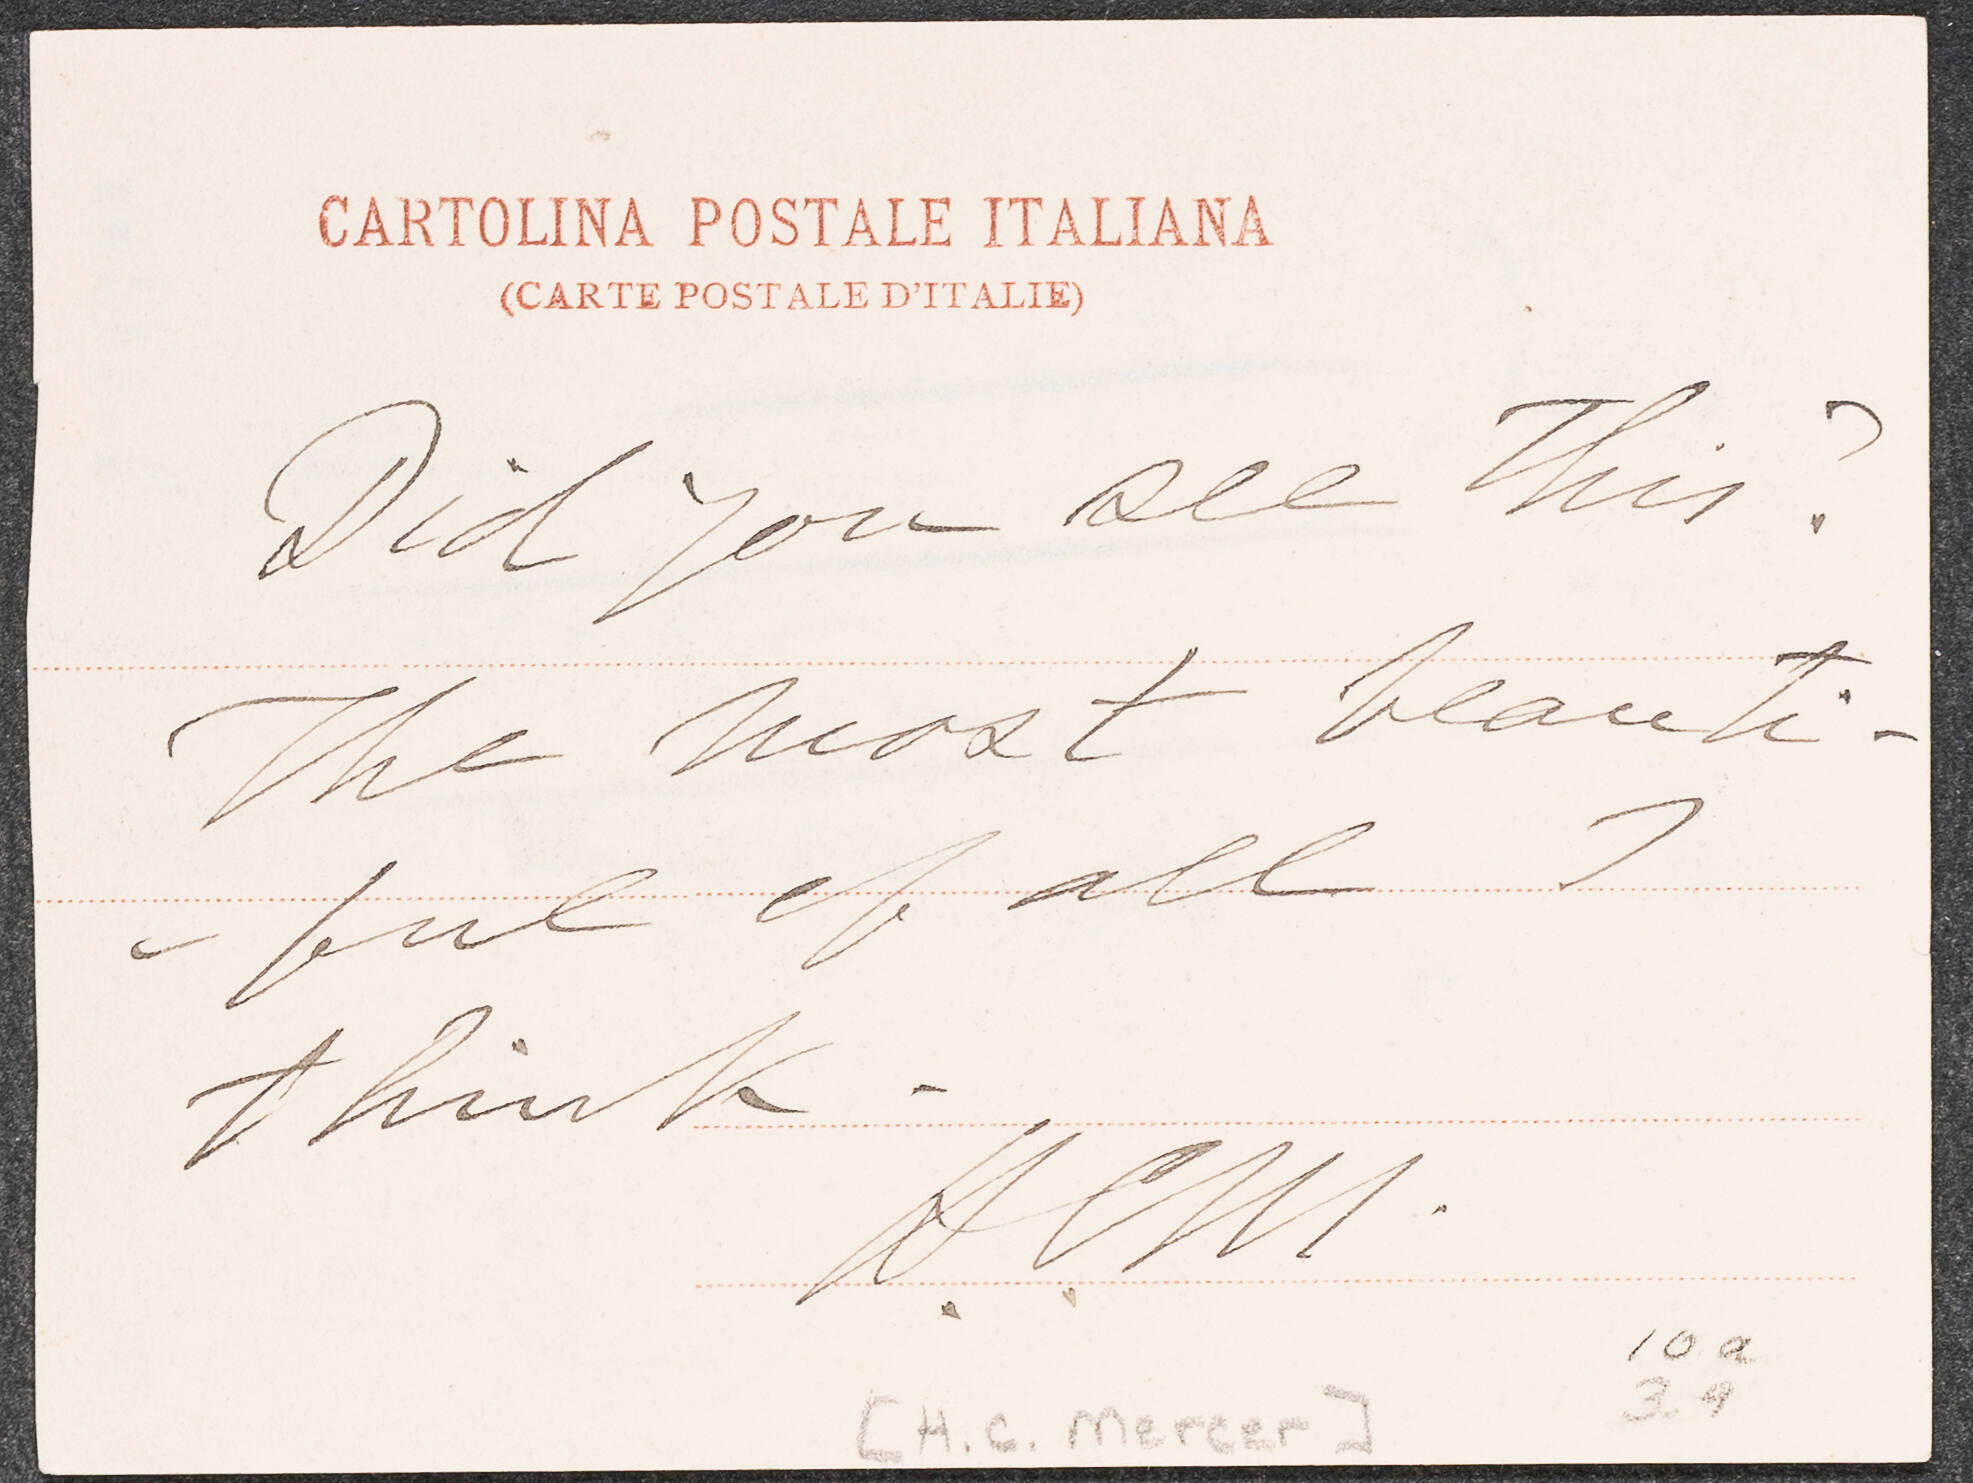 CARTOLINA POSTALE ITALIANA
(CARTE POSTALE D'ITALIE)
Did you see this?
The most beauti-
-ful of all I
think -
H.C.M.
10a
39
[H.C. Mercer]